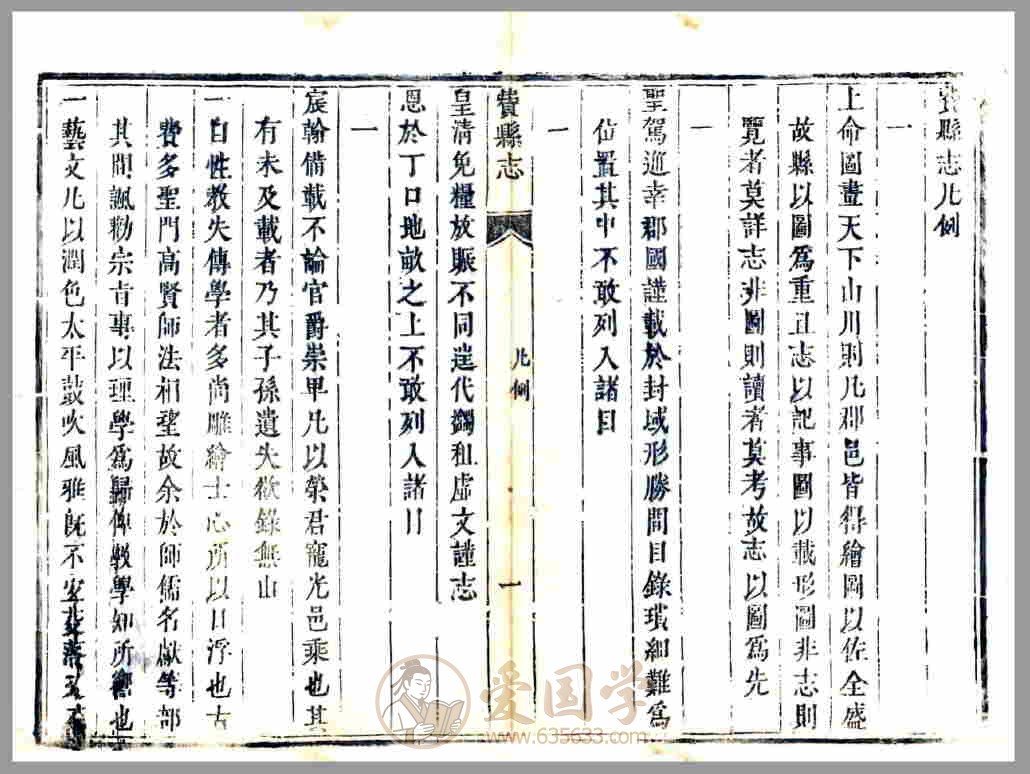 費縣志凡例
一
上命圖畫天下山川則凡郡邑皆得繪圖以佐全盛
故縣以圖爲重且志以記事圖以載形圖非志則
覽者莫詳志非圖則讀者莫考故志以圖爲先
一
聖駕廵幸郡國謹載於封域形勝間目錄瑣細難爲
位置其中不敢列入諸目
一
費縣志
凡例
一
皇清免糧放賑不同逆代蠲租虛文謹志
恩於丁口地畝之上不敢列入諸目
一
宸翰備載不論官爵崇卑凡以榮君寵光邑乘也其
有未及載者乃其子孫遺失欲錄無由
一自性教失傳學者多尚雕繪士心所以日浮也古
費多聖門高賢師法相望故余於師儒名獻等部
其間諷勸宗旨專以理學爲歸俾敎學知所嚮也
一藝文凡以潤色太平鼓吹風雅旣不
爱国学
www.635633.com